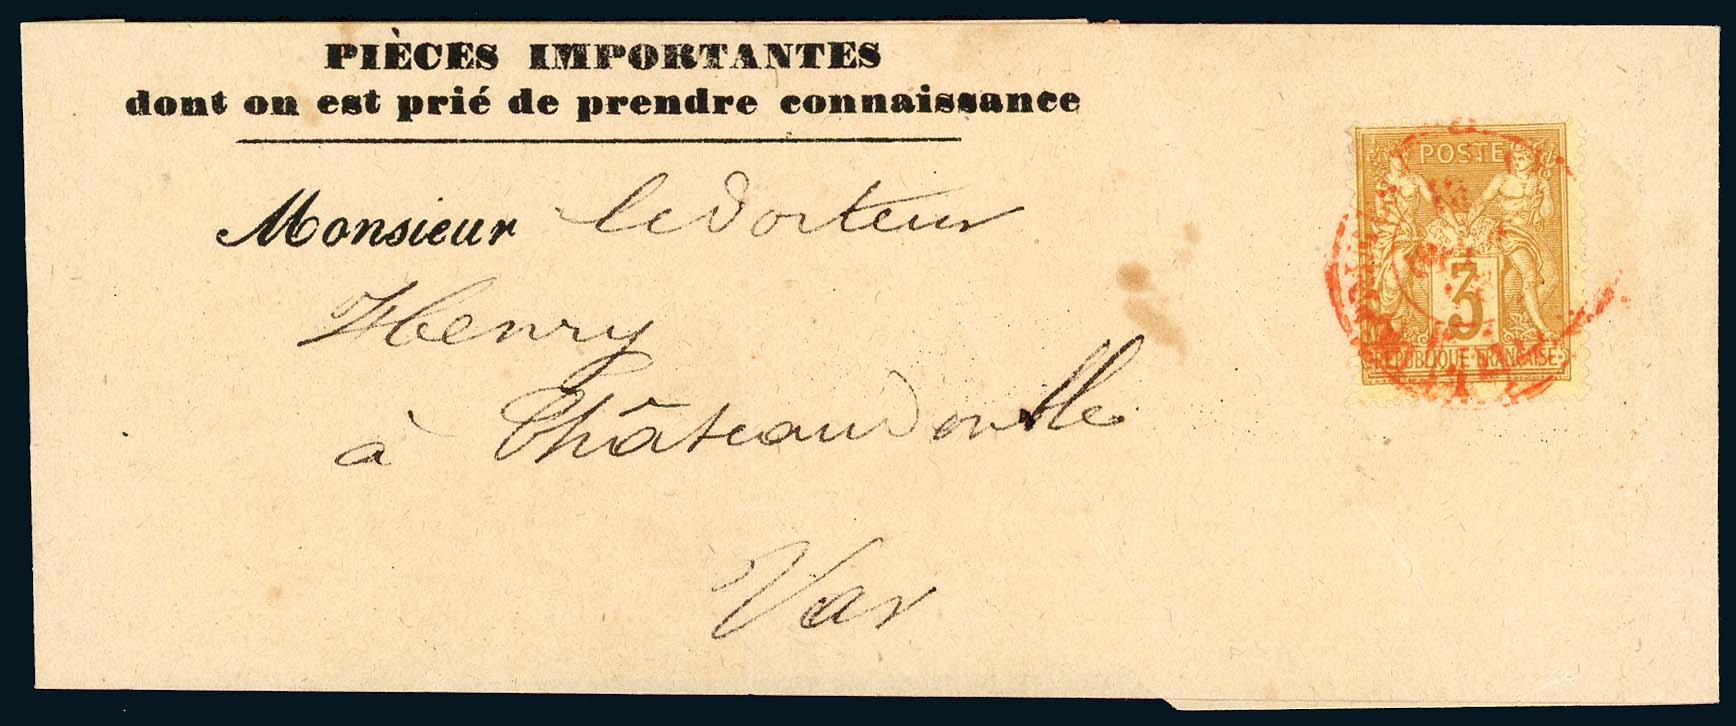 PIÈCES IMPORTANTES
dont on est prié de prendre connaissance
Monsieur le Docteur
Henry
à Châteaudouble
Var
POSTE
3
REPUBLIQUE FRANÇAISE